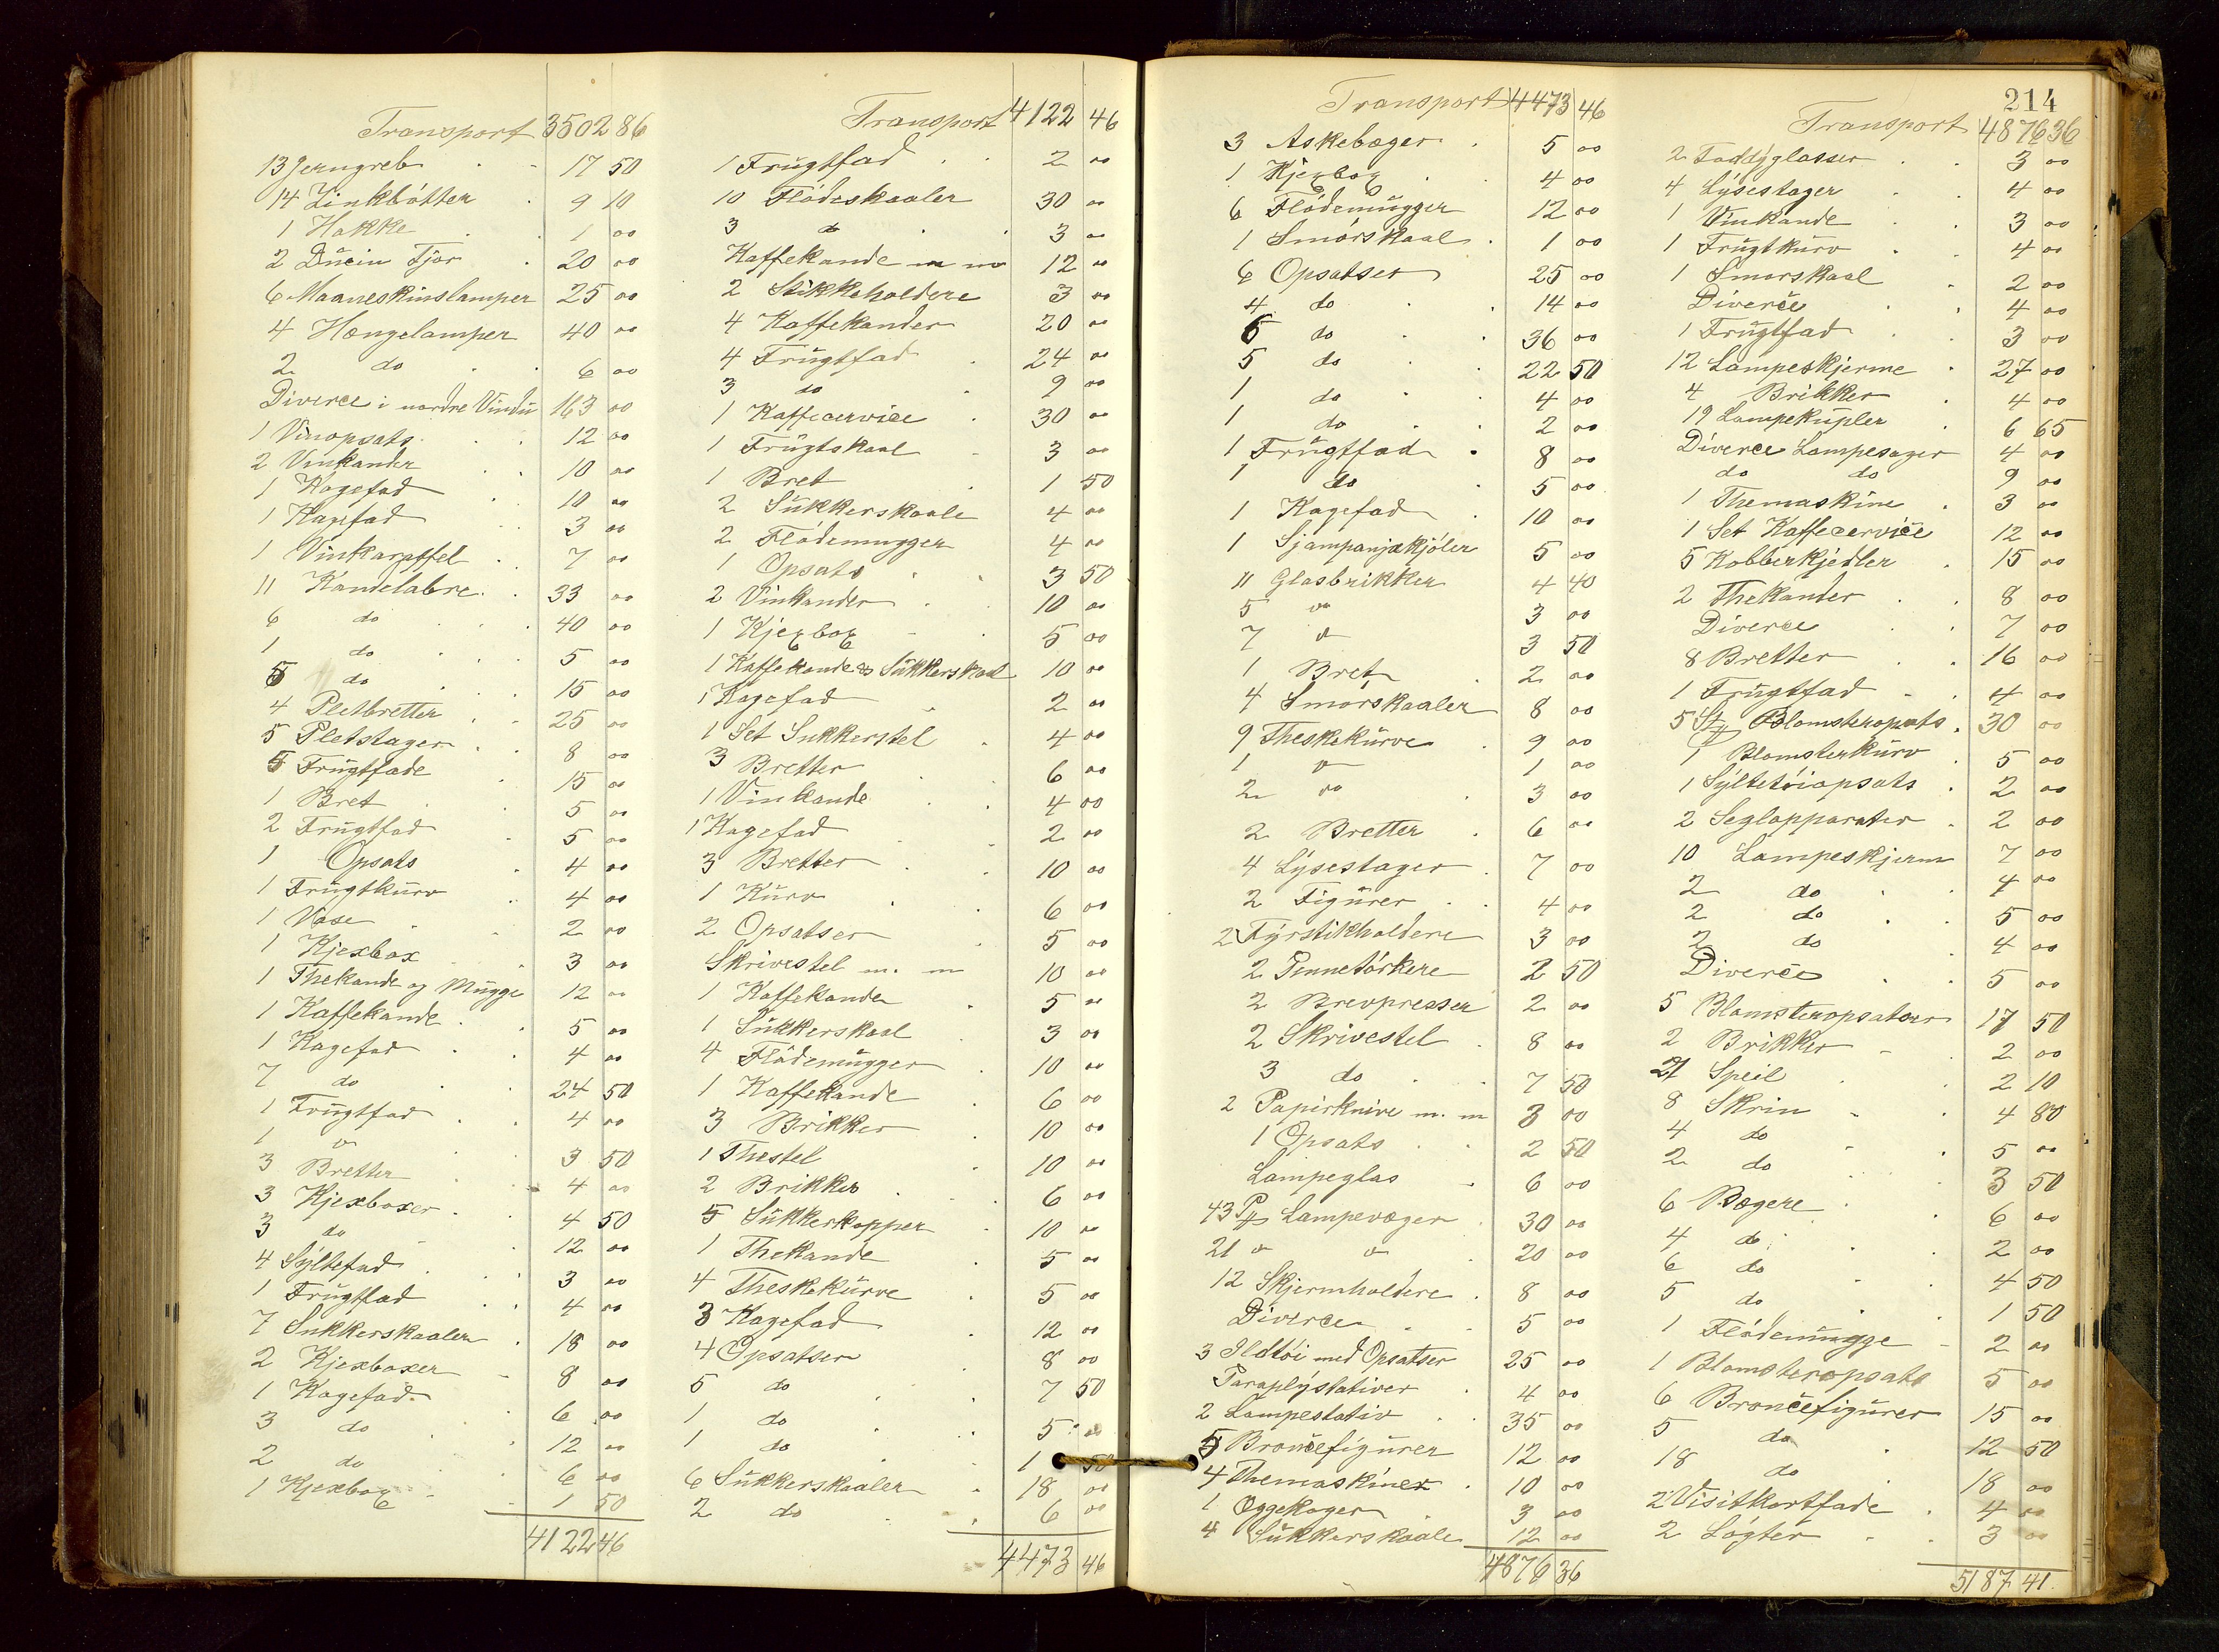 Transport 3502 86
13 Jerngreb 17 50
14 Zinkbøtter 9 10
1 Hakke 1 00
2 Dusin Tjor 20 00
6 Maaneskinslamper 25 00
4 Hængelamper 40 00
2 do 6 00
Diverce i nordre Vindu 163 00
1 Vinopsats 12 00
2 Vinkander 10 00
1 Kagefad 10 00
1 Kagefad 3 00
1 Vinkaraffel 7 00
11 Kandelabre 33 00
6 do 40 00
1 do 5 00
5 do 15 00
4 Pletbretter 25 00
5 Pletstager 8 00
5 Frugtfade 15 00
1 Bret 5 00
2 Frugtfad 5 00
1 Opsats 4 00
1 Frugtkurv 4 00
1 Vase 2 00
1 Kjexbox 3 00
1 Thekande og Mugge 12 00
1 Kaffekande 5 00
1 Kagefad 4 00
7 do 24 50
1 Frugtfad 4 00
1 do 3 50
3 Bretter 4 00
3 Kjexboxer 4 50
3 do 12 00
4 Syltefad 3 00
1 Frugtfad 4 00
7 Sukkerskaaler 18 00
2 Kjexboxer 8 00
1 Kagefad 6 00
3 do 12 00
2 do 6 00
1 Kjexbox 1 50
4122 46
Transport 4122 46
1 Frugtfad 2 00
10 Flødeskaaler 30 00
3 do 3 00
Kaffekande m m 12 00
2 Stikkeholdere 3 00
4 Kaffekander 20 00
4 Frugtfad 24 00
3 do 9 00
1 Kaffecervice 30 00
1 Frugtskaal 3 00
1 Bret 1 50
2 Sukkerskaale 4 00
2 Flødemugger 4 00
1 Opsats 3 50
2 Vinkander 10 00
1 Kjexbox 5 00
1 Kaffekande & Sukkerskaal 10 00
1 Kagefad 2 00
1 Set Sukkerstel 4 00
3 Bretter 6 00
1 Vinkande 4 00
1 Kagefad 2 00
3 Bretter 10 00
1 Kurv 6 00
2 Opsatser 5 00
Skrivestel m. m 10 00
1 Kaffekande 5 00
1 Sukkerskaal 3 00
4 Flødemugger 10 00
1 Kaffekande 6 00
3 Brikker 10 00
1 Thestel 10 00
2 Brikker 6 00
5 Sukkerkopper 10 00
1 Thekande 5 00
4 Theskekurve 5 00
3 Kagefad 12 00
4 Opsatser 8 00
5 do 7 50
1 do 5 00
1 do 1 50
6 Sukkerskaaler 18 00
2 do 6 00
4473 46
Transport 4473 46
3 Askebæger 5 00
1 Kjexbox 4 00
6 Flødemugger 12 00
1 Smørskaal 1 00
6 Opsatser 25 00
4 do 14 00
6 do 36 00
5 do 22 50
1 do 4 00
1 do 2 00
1 Frugtfad 8 00
1 do 5 00
1 Kagefad 10 00
1 Sjampanjekjøler 5 00
11 Glasbrikker 4 40
5 do 3 00
7 do 3 50
1 Bret 2 00
4 Smørskaaler 8 00
9 Theskekurve 9 00
1 do 1 00
2 do 3 00
2 Bretter 6 00
4 Lysestager 7 00
2 Figurer 4 00
2 Fyrstikholdere 3 00
2 Pennetørkere 2 50
2 Brevpresser 2 00
2 Skrivestel 8 00
3 do 7 50
2 Papirknive m. m 3 00
1 Opsats 2 50
Lampeglas 6 00
43 Lampevæger 30 00
21 do do 20 00
12 Skjermholdere 8 00
Diverce 5 00
3 Ildtøi med Opsatser 25 00
Paraplystativer 4 00
2 Lampestativ 35 00
5 Broncefigurer 12 00
4 Themaskiner 10 00
1 Eggekoger 3 00
4 Sukkerskaale 12 00
4876 36
214
Transport 4876 36
2 Toddyglasser 3 00
4 Lysestager 4 00
1 Vinkande 3 00
1 Frugtkurv 4 00
1 Smørskaal 2 00
Diverce 4 00
1 Frugtfad 3 00
12 Lampeskjerme 27 00
4 Brikker 4 00
19 Lampekupler 6 65
Diverce Lampesager 4 00
do do 9 00
1 Themaskine 3 00
1 Set Kaffecervice 12 00
5 Kobberkjedler 15 00
2 Thekander 8 00
Diverce 7 00
8 Bretter 16 00
1 Frugtfad 4 00
5 St Blomsteropsats 30 00
1 Blomsterkurv 5 00
1 Syltetøiopsats 2 00
2 Seglapparater 2 00
10 Lampeskjerm 7 00
2 do 4 00
2 do 5 00
2 do 4 00
Diverce 5 00
5 Blomsteropsatser 17 50
2 Brikker 2 00
21 Speil 2 10
8 Skrin 4 80
4 do 5 00
2 do 3 50
6 Bægere 6 00
4 do 2 00
6 do 4 50
5 do 1 50
1 Flødemugge 2 00
1 Blomsteropsats 5 00
6 Broncefigurer 15 00
5 do 12 50
18 do 18 00
2 Visitkortfade 4 00
2 Løgter 3 00
5187 41